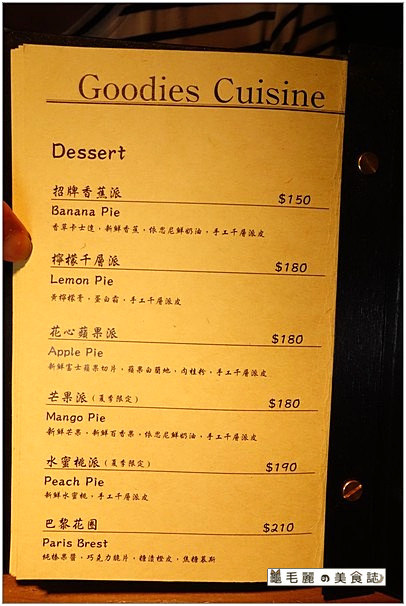 Goodies Cuisine
Dessert
招牌香蕉派 $150
Banana Pie
香草卡士達，新鮮香蕉，依思尼鮮奶油，手工千層派皮
檸檬千層派 $180
Lemon Pie
黃檸檬膏，蛋白霜，手工千層派皮
花心蘋果派 $180
Apple Pie
新鮮富士蘋果切片，蘋果白蘭地，肉桂粉，手工千層派皮
芒果派（夏季限定） $180
Mango Pie
新鮮芒果，新鮮百香果，依思尼鮮奶油，手工千層派皮
水蜜桃派（夏季限定） $190
Peach Pie
新鮮水蜜桃，手工千層派皮
巴黎花圈 $210
Paris Brest
純榛果醬，巧克力脆片，糖漬橙皮，焦糖慕斯
毛麗の美食誌